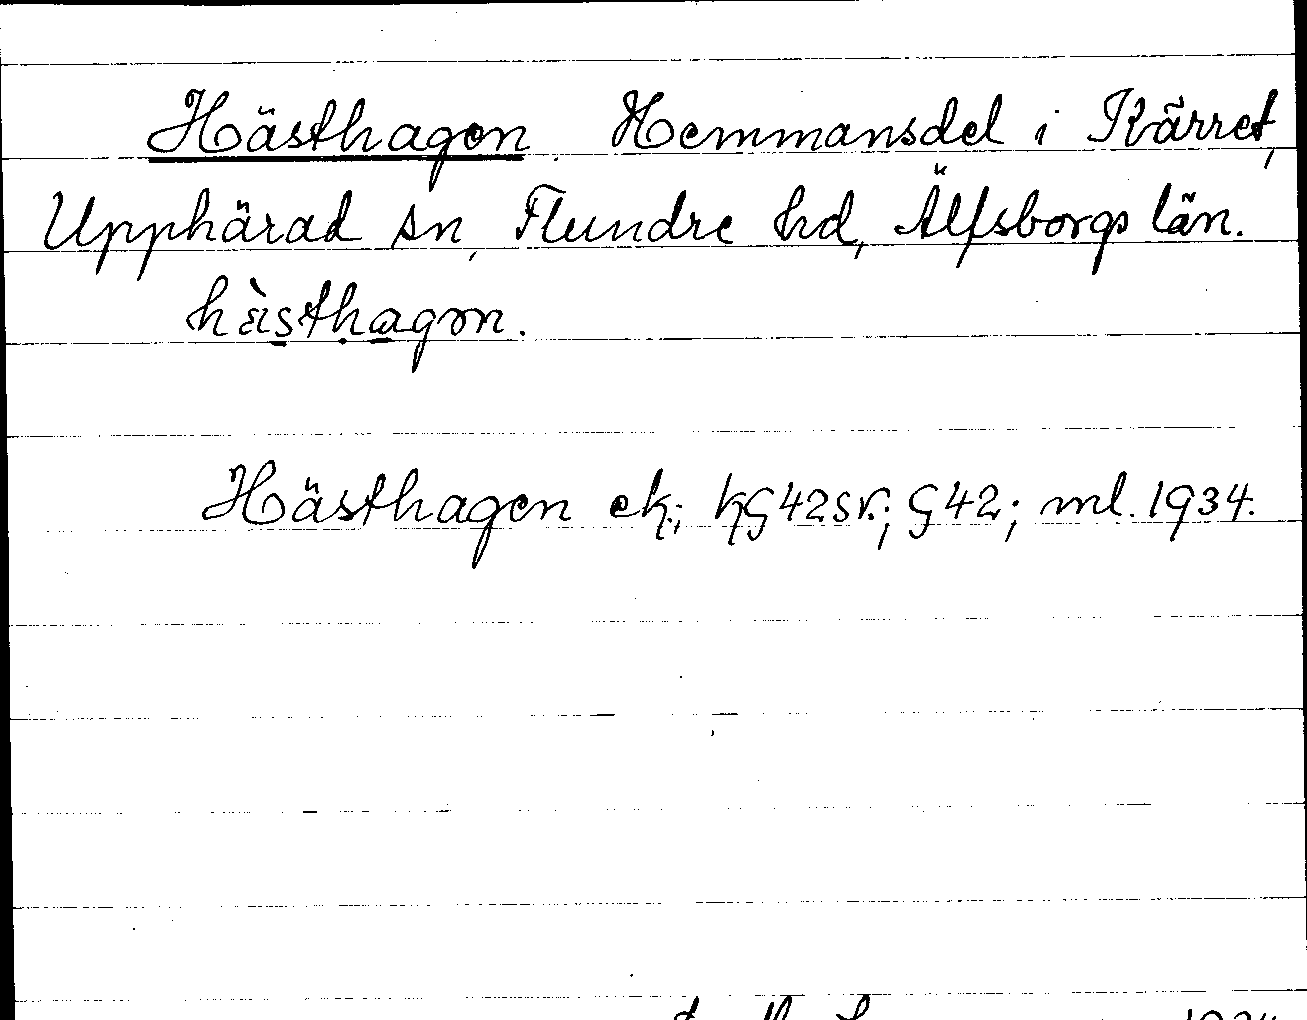 Hästhagen. Hemmansdel i Kärret,
Upphärad sn, Flundre hd, Älfsborgs län.
hàsthagən.
Hästhagen ek.; kG42SV.; G42; ml. 1934.